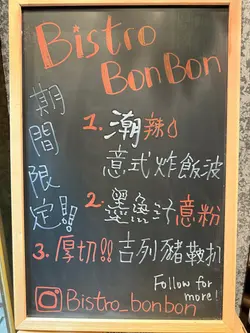 Bistro
BonBon
期間限定!!
1. 潮辣
意式炸飯波
2. 墨魚汁意粉
3. 厚切!! 吉列豬鞍扒
Follow for
more!
Bistro_bonbon